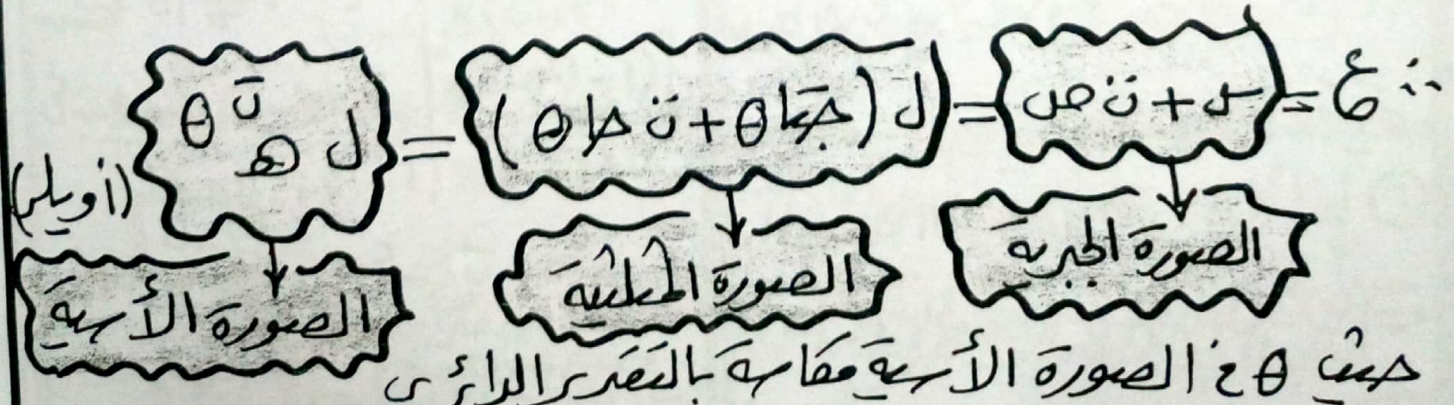 ∴ ع = س + ت ص = ل (جتا θ + ت جا θ) = ل هـ ^ت θ (أويلر)
الصورة الجبرية الصورة المثلثية الصورة الأسية
حيث θ في الصورة الأسية مقاسة بالتقدير الدائرى